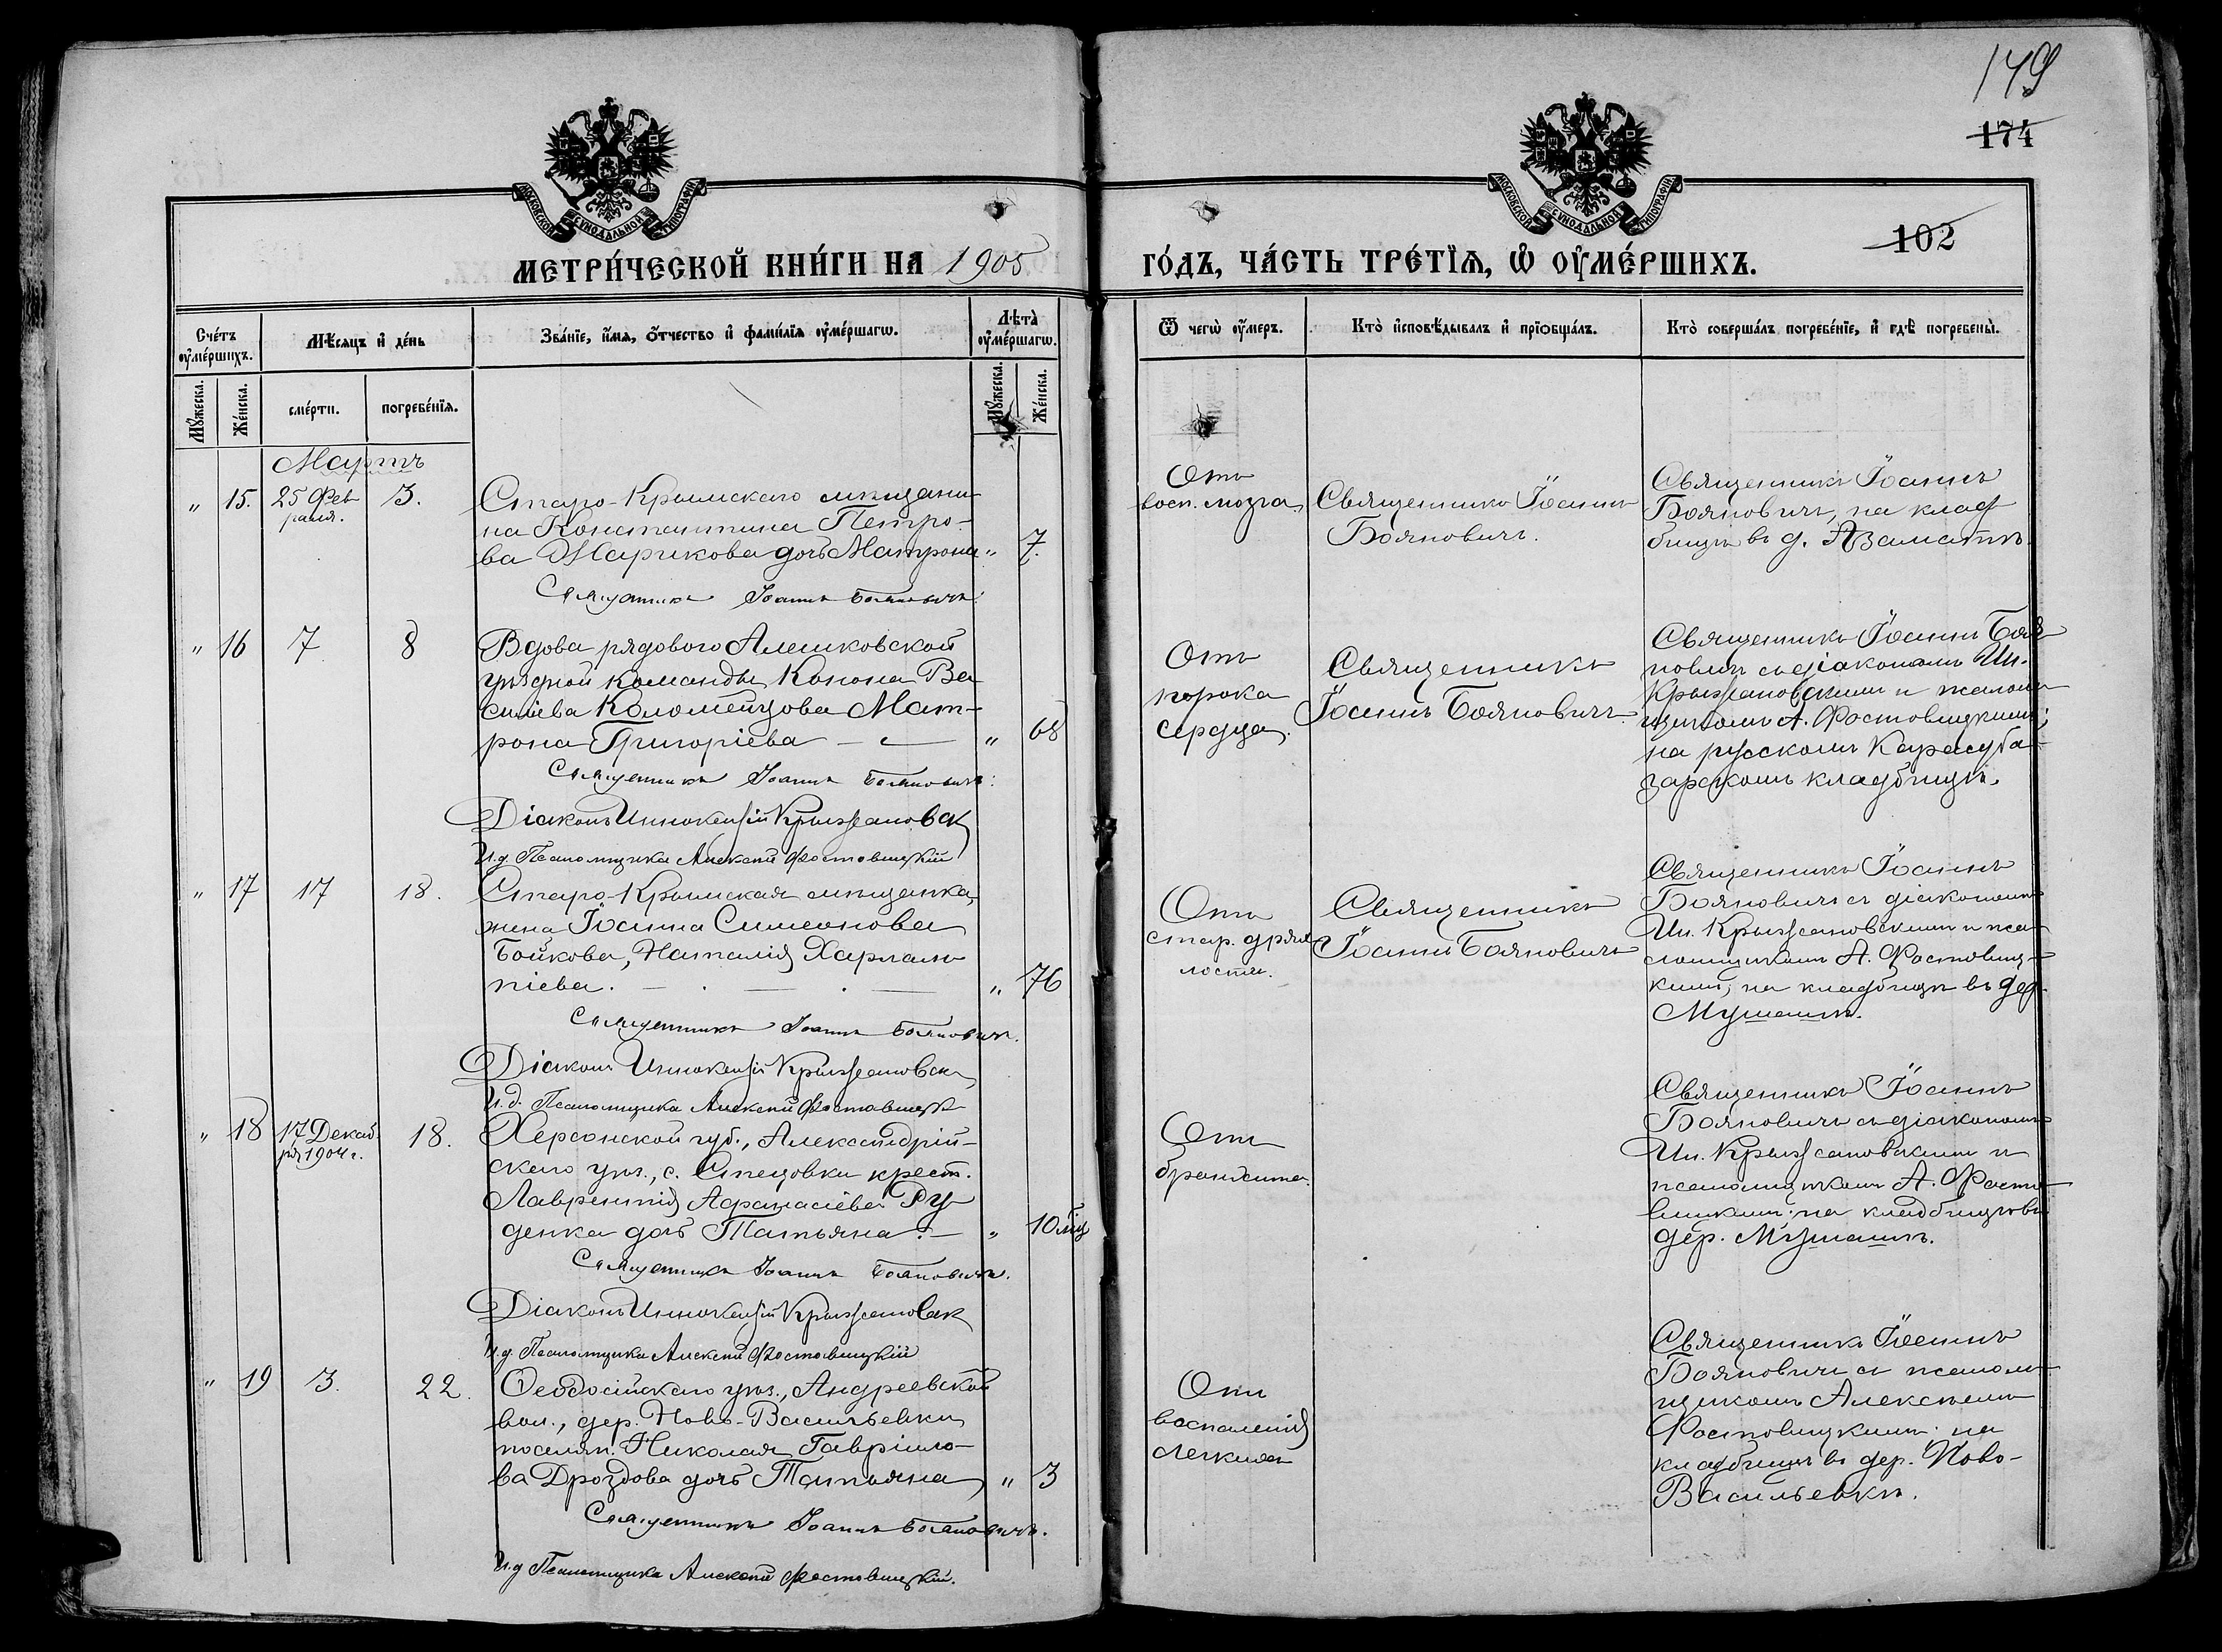 149
174
102
МОСКОВСКОЙ СѴНОДАЛЬНОЙ ТИПОГРАФІИ
МОСКОВСКОЙ СѴНОДАЛЬНОЙ ТИПОГРАФІИ
МЕТРИ́ЧЕСКОЙ КНИ́ГИ НА 1905
ГО́ДЪ, ЧА́СТЬ ТРЕ́ТІЯ, Ѡ ОУМЕ́РШИХЪ.
Сче́тъ оумéршихъ.
Мѣ́сяцъ и де́нь
Зва́ніе, и́мя, о́тчество и фами́лія оуме́ршагѡ.
Лѣта̀ оуме́ршагѡ.
Мꙋжеска.
Же́нска.
сме́рти.
погребе́нія.
Мꙋжеска.
Же́нска.
Ѿ чегѡ̀ оу́меръ.
Кто̀ исповѣ́дывалъ и пріобща́лъ.
Кто̀ соверша́лъ погребе́ніе, и гдѣ̀ погребены̀.
Мартъ
" 15. 25 Фев
раля.
3.
Старо-Крымскаго мѣщани-
на Константина Петро-
ва Марикова дочь Матрона
" 7.
Священникъ Іоаннъ Бояновичъ.
Отъ
восп. мозга.
Священникъ Іоаннъ
Бояновичъ.
Священникъ Іоаннъ
Бояновичъ, на клад
бищѣ въ д. Азаматъ.
" 16 7 8
Вдова рядового Алешковской
уѣздной команды Конона Ва
силіева Коломейцова Мат-
рона Григоріева
" 68
Священникъ Іоаннъ Бояновичъ.
Діаконъ Иннокентій Крыжановск
И.д. Псаломщика Алексѣй Фостовицкій
Отъ
порока
сердца.
Священникъ
Іоаннъ Бояновичъ.
Священникъ Іоаннъ Боя
новичъ съ діакономъ Ин.
Крыжановскимъ и псалом
щикомъ А. Фостовицкимъ;
на русскомъ Карасуба-
зарскомъ кладбищѣ.
" 17 17 18.
Старо-Крымская мѣщанка,
жена Іоанна Симеонова
Бойкова, Наталія Харлам
піева.
" 76
Священникъ Іоаннъ Бояновичъ.
Діаконъ Иннокентій Крыжановск
И.д. Псаломщика Алексѣй Фостовицк
Отъ
стар. дрях
лости.
Священникъ
Іоаннъ Бояновичъ
Священникъ Іоаннъ
Бояновичъ съ діакономъ
Ин. Крыжановскимъ и пса-
ломщикомъ А. Фостовиц-
кимъ, на кладбищѣ въ дер.
Мушашъ.
" 18 17 Декаб
ря 1904 г.
18.
Херсонской губ., Александрій-
скаго уѣз., с. Спецовки крест.
Лаврентія Афанасіева Ру
денка дочь Татьяна.
" 10 мѣц
Священникъ Іоаннъ Бояновичъ.
Діаконъ Иннокентій Крыжановск
И.д. Псаломщика Алексѣй Фостовицкій
Отъ
бронхита.
Священникъ Іоаннъ
Бояновичъ съ діакономъ
Ин. Крыжановскимъ и
псаломщикомъ А. Фосто-
вицкимъ; на кладбищѣ въ
дер. Мушашъ.
" 19 3. 22.
Ѳеодосійскаго уѣз., Андреевской
вол., дер. Ново-Васильевки
поселян. Николая Гавріило-
ва Дроздова дочь Татьяна
" 3
Священникъ Іоаннъ Бояновичъ.
И.д Псаломщика Алексѣй Фостовицкій.
Отъ
воспаленія
легкихъ
Священникъ Іоаннъ
Бояновичъ съ псалом-
щикомъ Алексѣемъ
Фостовицкимъ; на
кладбищѣ въ дер. Ново-
Васильевкѣ.